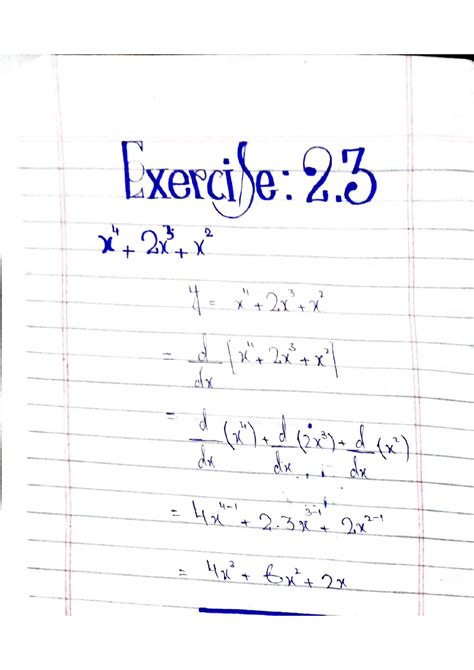 Exercise: 2.3
x⁴ + 2x³ + x²
y = x⁴ + 2x³ + x²
= d/dx [x⁴ + 2x³ + x²]
= d/dx (x⁴) + d/dx (2x³) + d/dx (x²)
= 4x⁴⁻¹ + 2.3x³⁻¹ + 2x²⁻¹
= 4x² + 6x² + 2x